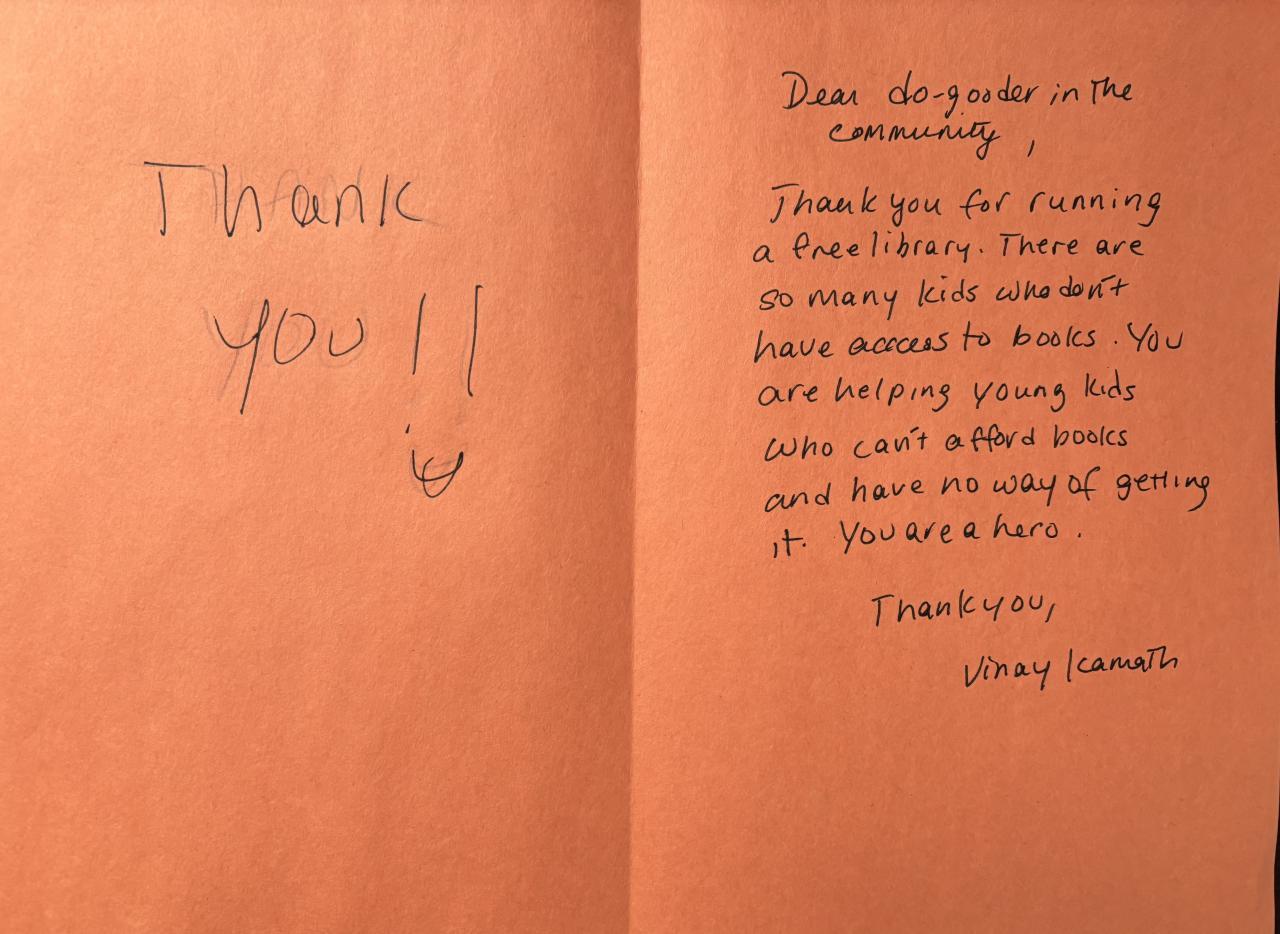 Thank
you!!
Dear do-gooder in the
community,
Thank you for running
a free library. There are
so many kids who don't
have acccess to books. You
are helping young kids
who can't afford books
and have no way of getting
it. You are a hero.
Thank you,
Vinay Kamath